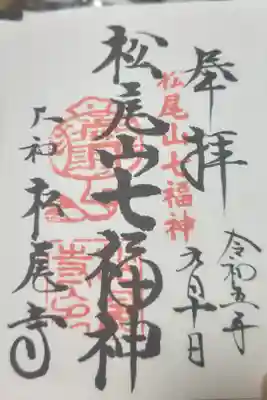 奉拝
令和五年
九月十日
松尾山七福神
松尾山七福神
大和 松尾寺